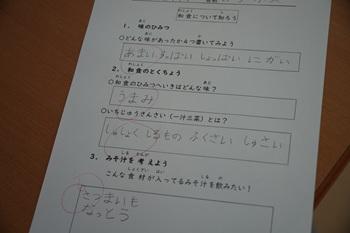 和食について知ろう
1. 味のひみつ
○どんな味があったか4つ書いてみよう
あまい すっぱい しょっぱい にがい
2. 和食のとくちょう
○和食のひみつへいきはどんな味?
うまみ
○いちじゅうさんさい(一汁三菜)とは?
しゅしょく しるもの ふくさい しゅさい
3. みそ汁を考えよう
こんな食材が入ってるみそ汁を飲みたい!
さつまいも
なっとう